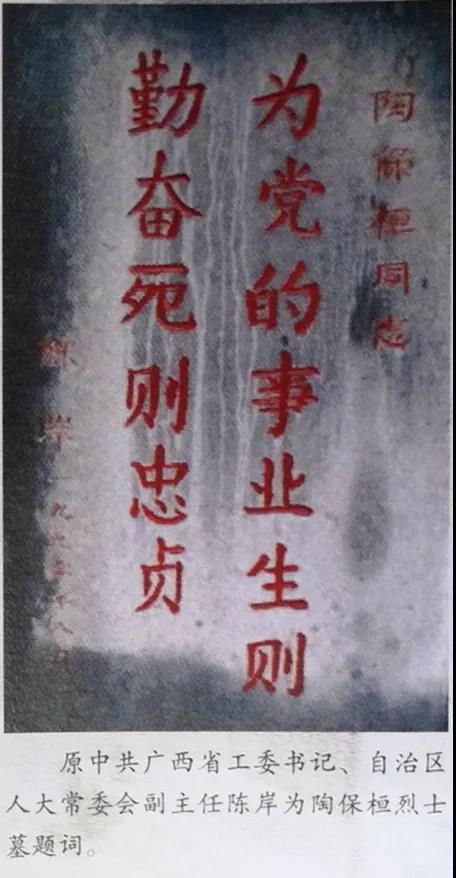 陶保桓同志
为党的事业生则
勤奋死则忠贞
陈岸
原中共广西省工委书记、自治区
人大常委会副主任陈岸为陶保桓烈士
墓题词。